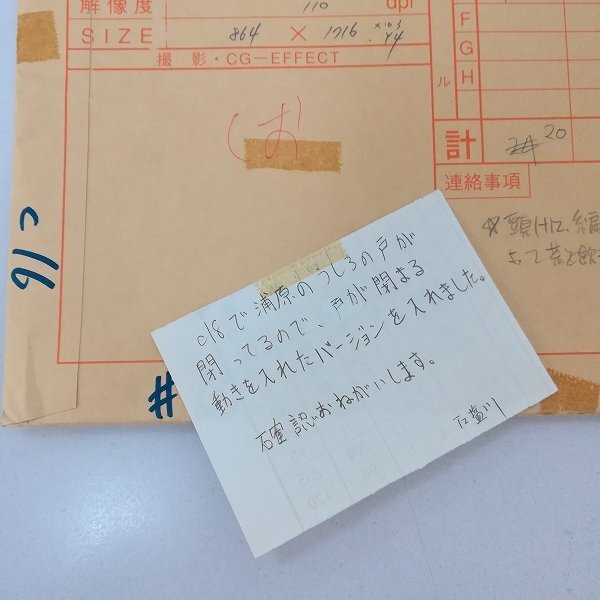 解像度 110 dpi
SIZE 864 × 1716
撮影・CG-EFFECT
F
G
H
ル
計 20
連絡事項
☆頭Hに、
よって茶を飲
c16
#
c18で浦原のうしろの戸が
閉ってるので、戸が閉まる
動きを入れたバージョンを入れました。
確認おねがいします。
石塩川